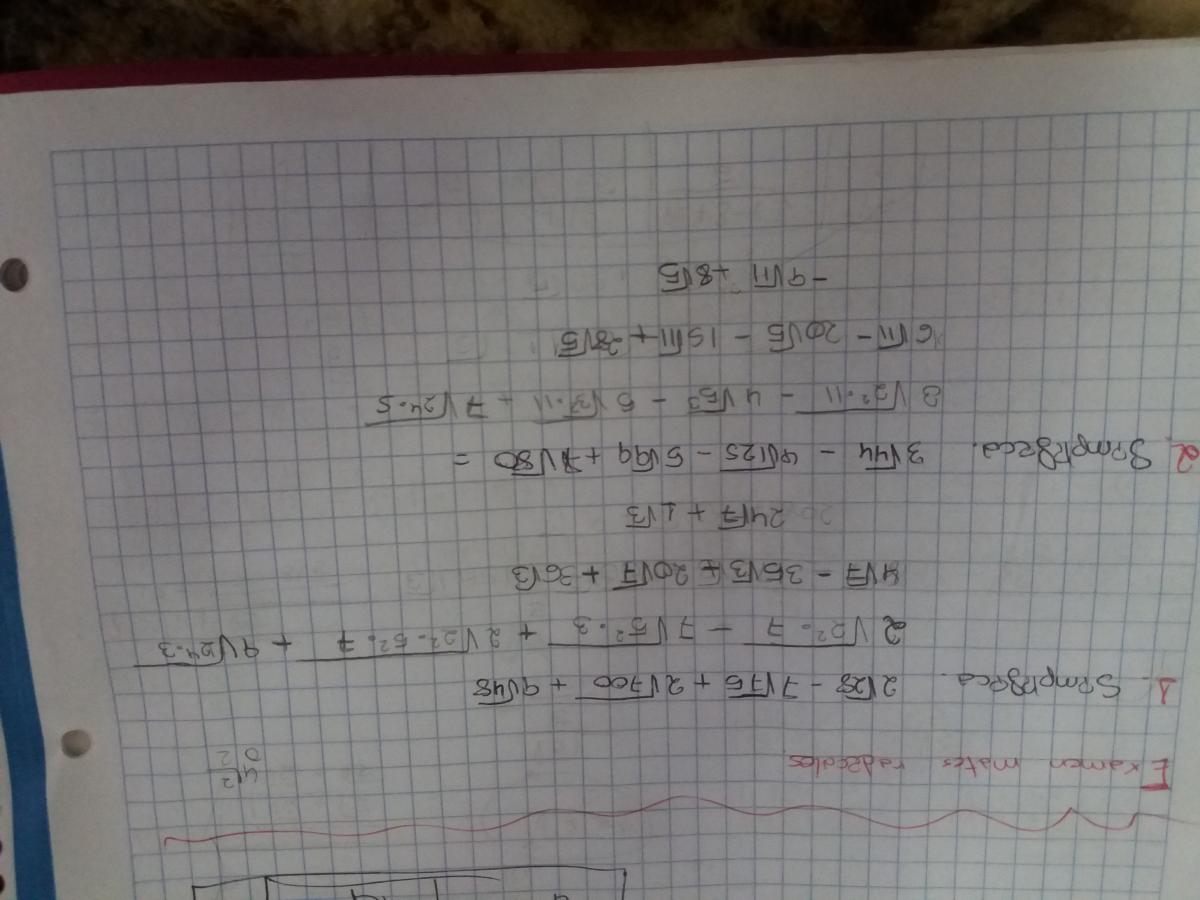 Examen mates radicales
4 | 2
0 2
1. Simplifica. 2√28 - 7√75 + 2√700 + 9√48
2√2²·7 - 7√5²·3 + 2√2²·5²·7 + 9√2⁴·3
4√7 - 35√3 + 20√7 + 36√3
24√7 + 1√3
2. Simplifica. 3√44 - 4√125 - 5√99 + 7√80 =
3√2²·11 - 4√5³ - 5√3²·11 + 7√2⁴·5
6√11 - 20√5 - 15√11 + 28√5
-9√11 + 8√5